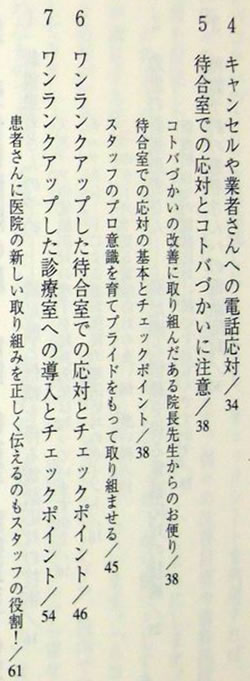 4 キャンセルや業者さんへの電話応対／34
5 待合室での応対とコトバづかいに注意／38
コトバづかいの改善に取り組んだある院長先生からのお便り／38
待合室での応対の基本とチェックポイント／38
スタッフのプロ意識を育てプライドをもって取り組ませる／45
6 ワンランクアップした待合室での応対とチェックポイント／46
7 ワンランクアップした診療室への導入とチェックポイント／54
患者さんに医院の新しい取り組みを正しく伝えるのもスタッフの役割！／61